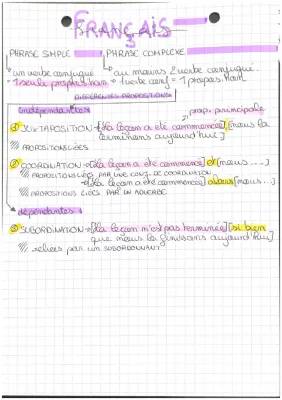 FRANÇAIS
PHRASE SIMPLE PHRASE COMPLEXE
un verbe conjugué au moins 2 verbe conjugué
= 1 seule propos° 1 verbe conj = 1 propos°
DIFFÉRENTES PROPOSITIONS
indépendantes: prop. principale
① JUXTAPOSITION → [la leçon a été commencée], [nous la
terminons aujourd'hui]
PROPOSITIONS LIÉES
② COORDINATION → [la leçon a été commencée] et [nous ...]
PROPOSITIONS LIÉES PAR UNE CONJ. DE COORDINATION
[la leçon a été commencée] alors [nous...]
PROPOSITIONS LIÉES PAR UN ADVERBE
dépendantes:
③ SUBORDINATION → [la leçon n'est pas terminée] [si bien
que nous la finissons aujourd'hui]
reliées par un subordonnant